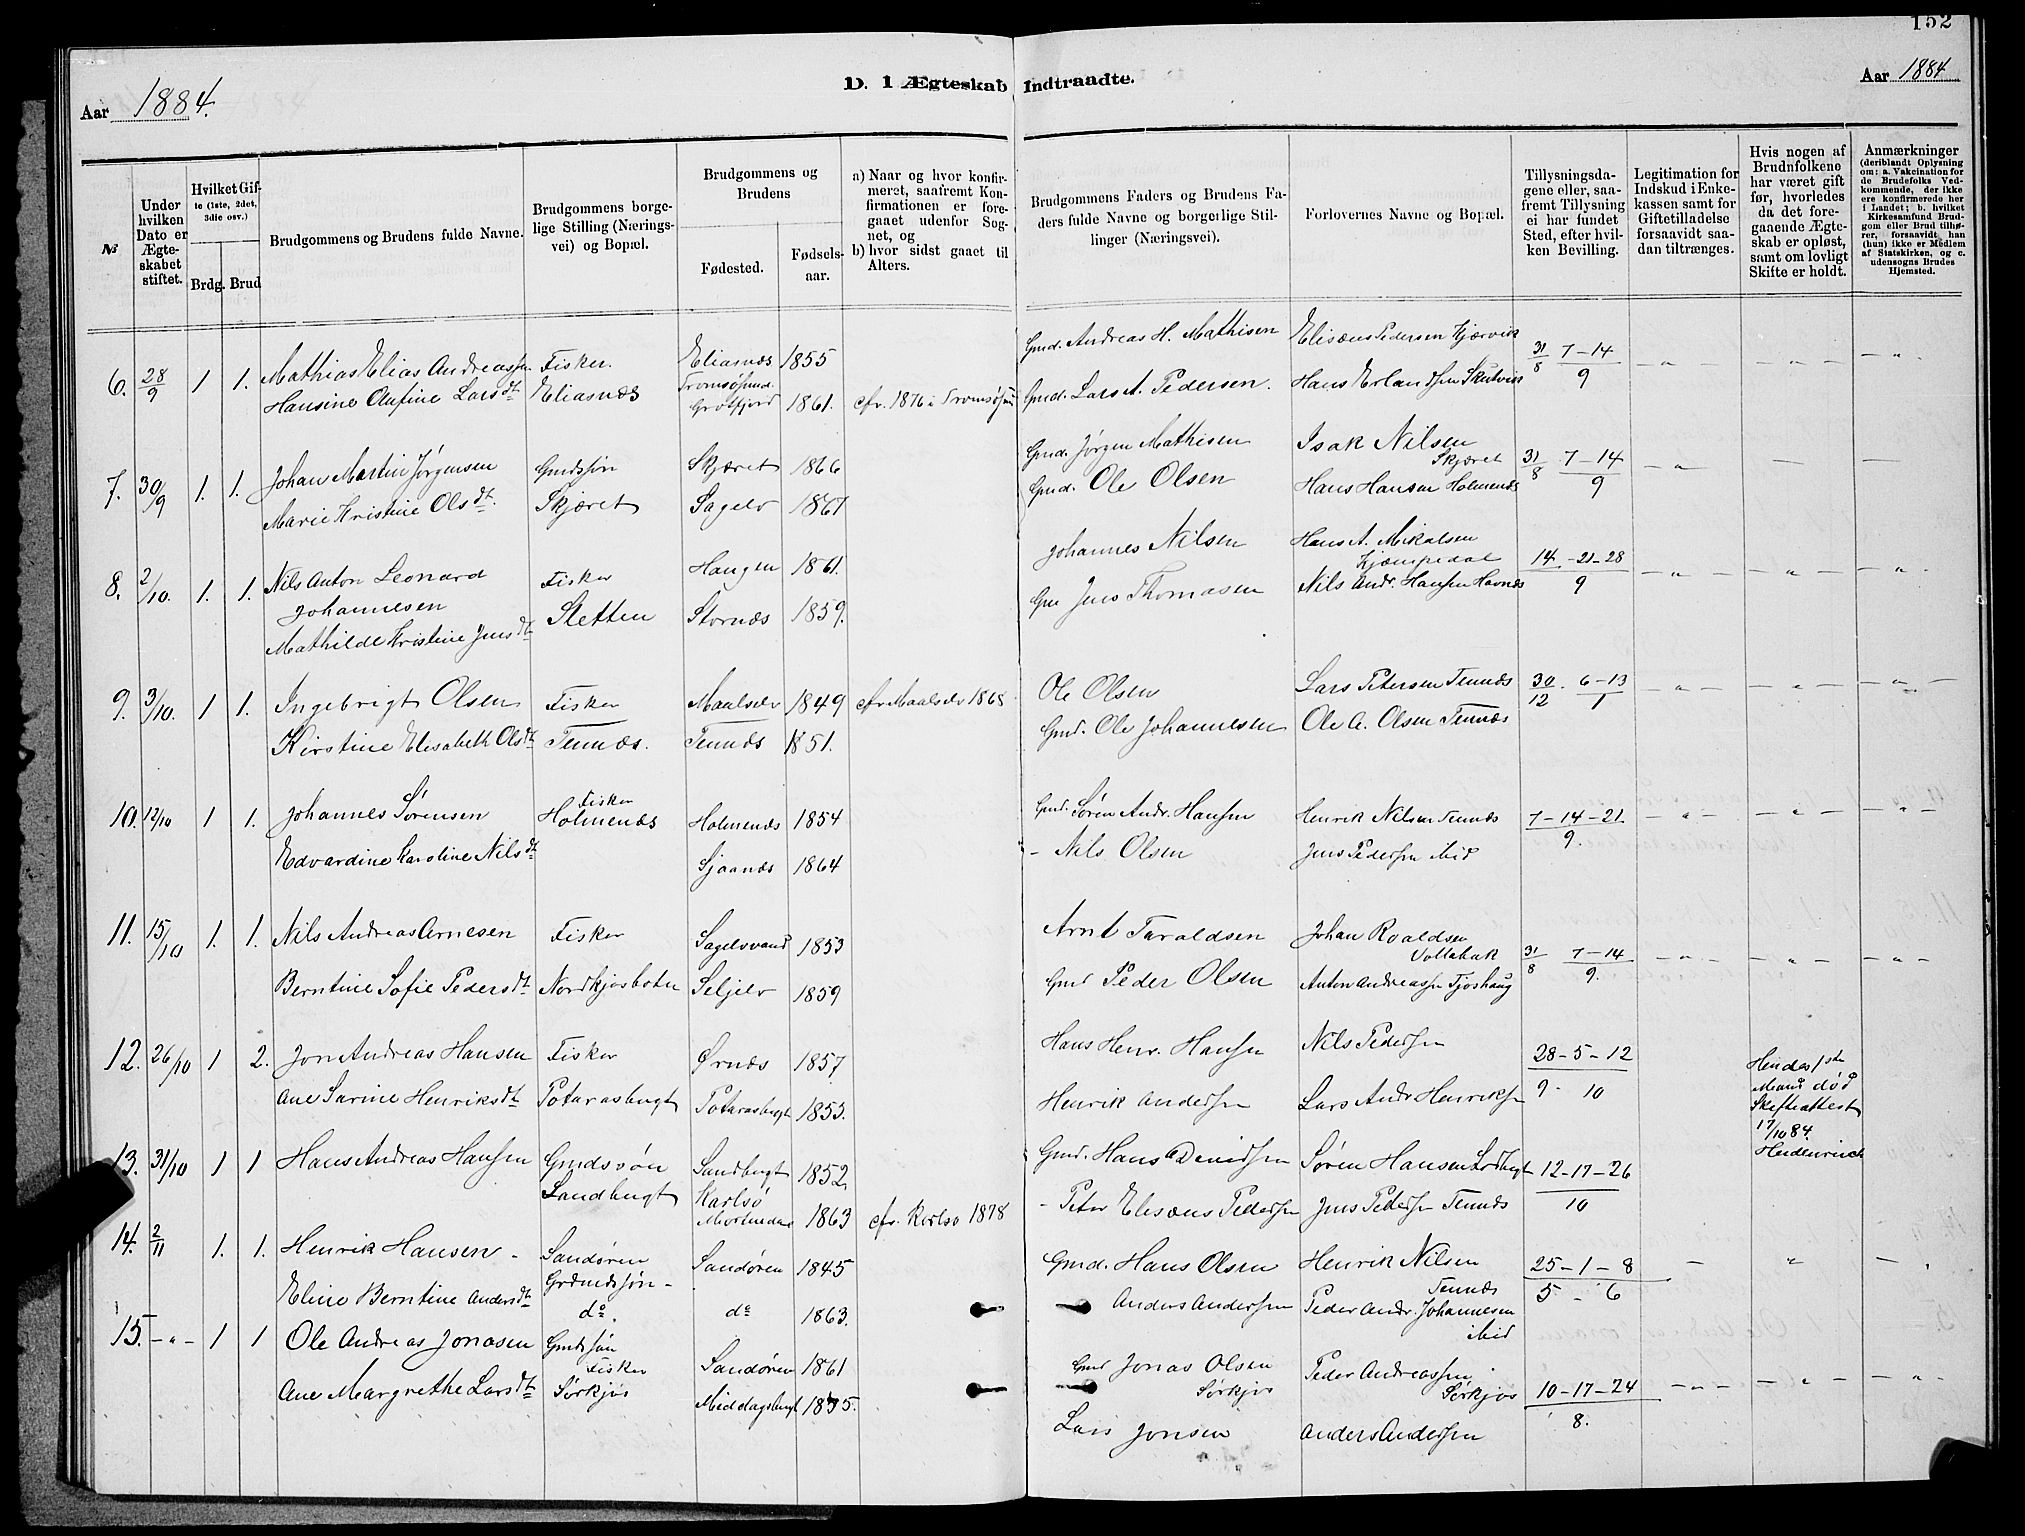 152
D. I Ægteskab Indtraadte.
Aar 1884.
Aar 1884
№
Under hvilken Dato er Ægteskabet stiftet.
Hvilket Gifte (1ste, 2det, 3die osv.)
Brdg. Brud
Brudgommens og Brudens fulde Navne.
Brudgommens borgelige Stilling (Næringsvei) og Bopæl.
Brudgommens og Brudens
Fødested.
Fødselsaar.
a) Naar og hvor konfirmeret, saafremt Konfirmationen er foregaaet udenfor Sognet, og
b) hvor sidst gaaet til Alters.
Brudgommens Faders og Brudens Faders fulde Navne og borgerlige Stillinger (Næringsvei).
Forlovernes Navne og Bopæl.
Tillysningsdagene eller, saafremt Tillysning ei har fundet Sted, efter hvilken Bevilling.
Legitimation for Indskud i Enkekassen samt for Giftetilladelse forsaavidt saadan tiltrænges.
Hvis nogen af Brudnfolkene har været gift før, hvorledes da det foregaaende Ægteskab er opløst, samt om lovligt Skifte er holdt.
Anmærkninger (deriblandt Oplysning om: a. Vakcination for de Brudefolks Vedkommende, der ikke ere konfirmerede her i Landet; b. hvilket Kirkesamfund Brudgom eller Brud tilhører, forsaavidt han (hun) ikke er Medlem af Statskirken, og c. udensogns Brudes Hjemsted.
6. 28/9 1 1. Mathias Elias Andreassen Fisker Eliasnæs 1855 Gmd. Andreas H. Mathisen Elisæus Pedersen Kjærvik 31/8 7-14/9 -"- -"- -"-
Hansine Olufine Larsdt Eliasnæs Tromsøsund Grøtfjord 1861. cfr. 1876 i Tromsøsund Gmd. Lars A. Pedersen. Hans Erlandsen Skutvik
7. 30/9 1. 1. Johan Martin Jørgensen Gmdssøn Skjæret 1866 Gmd. Jørgen Mathisen Isak Nilsen Skjæret 31/8 7-14/9 -"-
Marie Kristine Olsdt. Skjæret Sagelv 1861 Gmd. Ole Olsen Hans Hansen Holmenæs
8. 2/10. 1. 1. Nils Anton Leonard Johannesen Fisker Haugen 1861. Johannes Nilsen Hans A. Mikalsen Kjæmpedal 14-21-28/9 -"- -"- -"-
Mathilde Kristine Jensdt Sletten Stornæs 1859. Gm Jens Thomasen Nils Andr. Hansen Havnæs
9. 3/10. 1 1. Ingebrigt Olsen Fisker Maalselv 1849 cfr Maalselv 1868 Ole Olsen Lars Petersen Tennæs 30/12 6-13/1 -"- -"- -"-
Kirstine Elisabeth Olsdt Tennæs. Tennæs 1851. Gmd. Ole Johannesen Ole A. Olsen Tennæs
10. 12/10 1 1. Johannes Sørensen Fisker Holmenæs Holmenæs 1854 Gmd. Søren Andr. Hansen Henrik Nilsen Tennæs 7-14-21./9. -"- -"- -"-
Edvardine Karoline Nilsdt Sjaanæs 1864 - Nils Olsen Jens Pedersen ibid
11. 15/10 1. 1. Nils Andreas Arnesen Fisker Sagelvvand 1853 Arnt Taraldsen Johan Roaldsen Vollabak 31/8 7-14/9. -"- -"- -"-
Berntine Sofie Pedersdt Nordkjosbotn Seljelv 1859 Gmd Peder Olsen Anton Andreassen Fjoshaug
12. 26/10 1 2. Jon Andreas Hansen Fisker Ørnæs 1857 Hans Henr. Hansen Nils Pedersen 28-5-12/9-10 Hendes 1ste Mand død Skifteattest 17/10 84. Heidenreich
Ane Sarine Henriksdt Potarasbugt Potarasbugt 1853. Henrik Andersen Lars Andr Henriksen
13. 31/10 1 1 Hans Andreas Hansen Gmdssøn Sandbugt 1852 Gmd. Hans Davidsen Søren Hansen 12-17-26/10
Sandbugt Karlsø 1863 cfr. Karlsø 1878 - Peter Elisæus Pedersen Jens Pedersen Tennæs
14. 2/11 1. 1. Henrik Hansen - Sandøren Gaardmdssøn - Sandøren 1845 Gmd. Hans Olsen Henrik Nilsen Tennæs 25-1-8/5-6 - " - -
Eline Berntine Andersdt do. do 1863. Anders Andersen Peder Andr. Johannesen ibid
15. -"- 1 1 Ole Andreas Jonasen Gmdssøn Fisker Sandøren 1861 Gmd Jonas Olsen Sørkjos Peder Andreassen Sørkjos 10-17-24/8. -"- -"- -"-
Ane Margrethe Larsdt Sørkjos Middagsbugt 1835. Lars Jonsen Anders Andersen